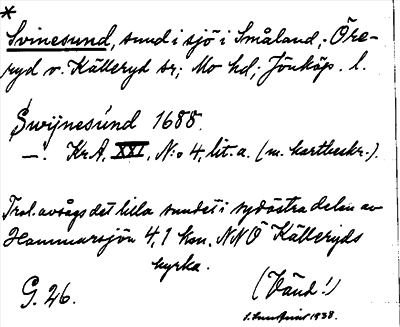 *
Svinesund, sund i sjö i Småland, Öre-
ryd o. Kålleryd sr; Mo hd; Jönköp. l.
Swijnesund 1688.
—. Kr.A, XXI, N:o 4, lit. a. (m. kartbeskr.).
Trol. avsågs det lilla sundet i sydöstra delen av
Hammarsjön 4,1 km. NNÖ Kålleryds
kyrka.
G. 26.
(Vänd!)
1938.